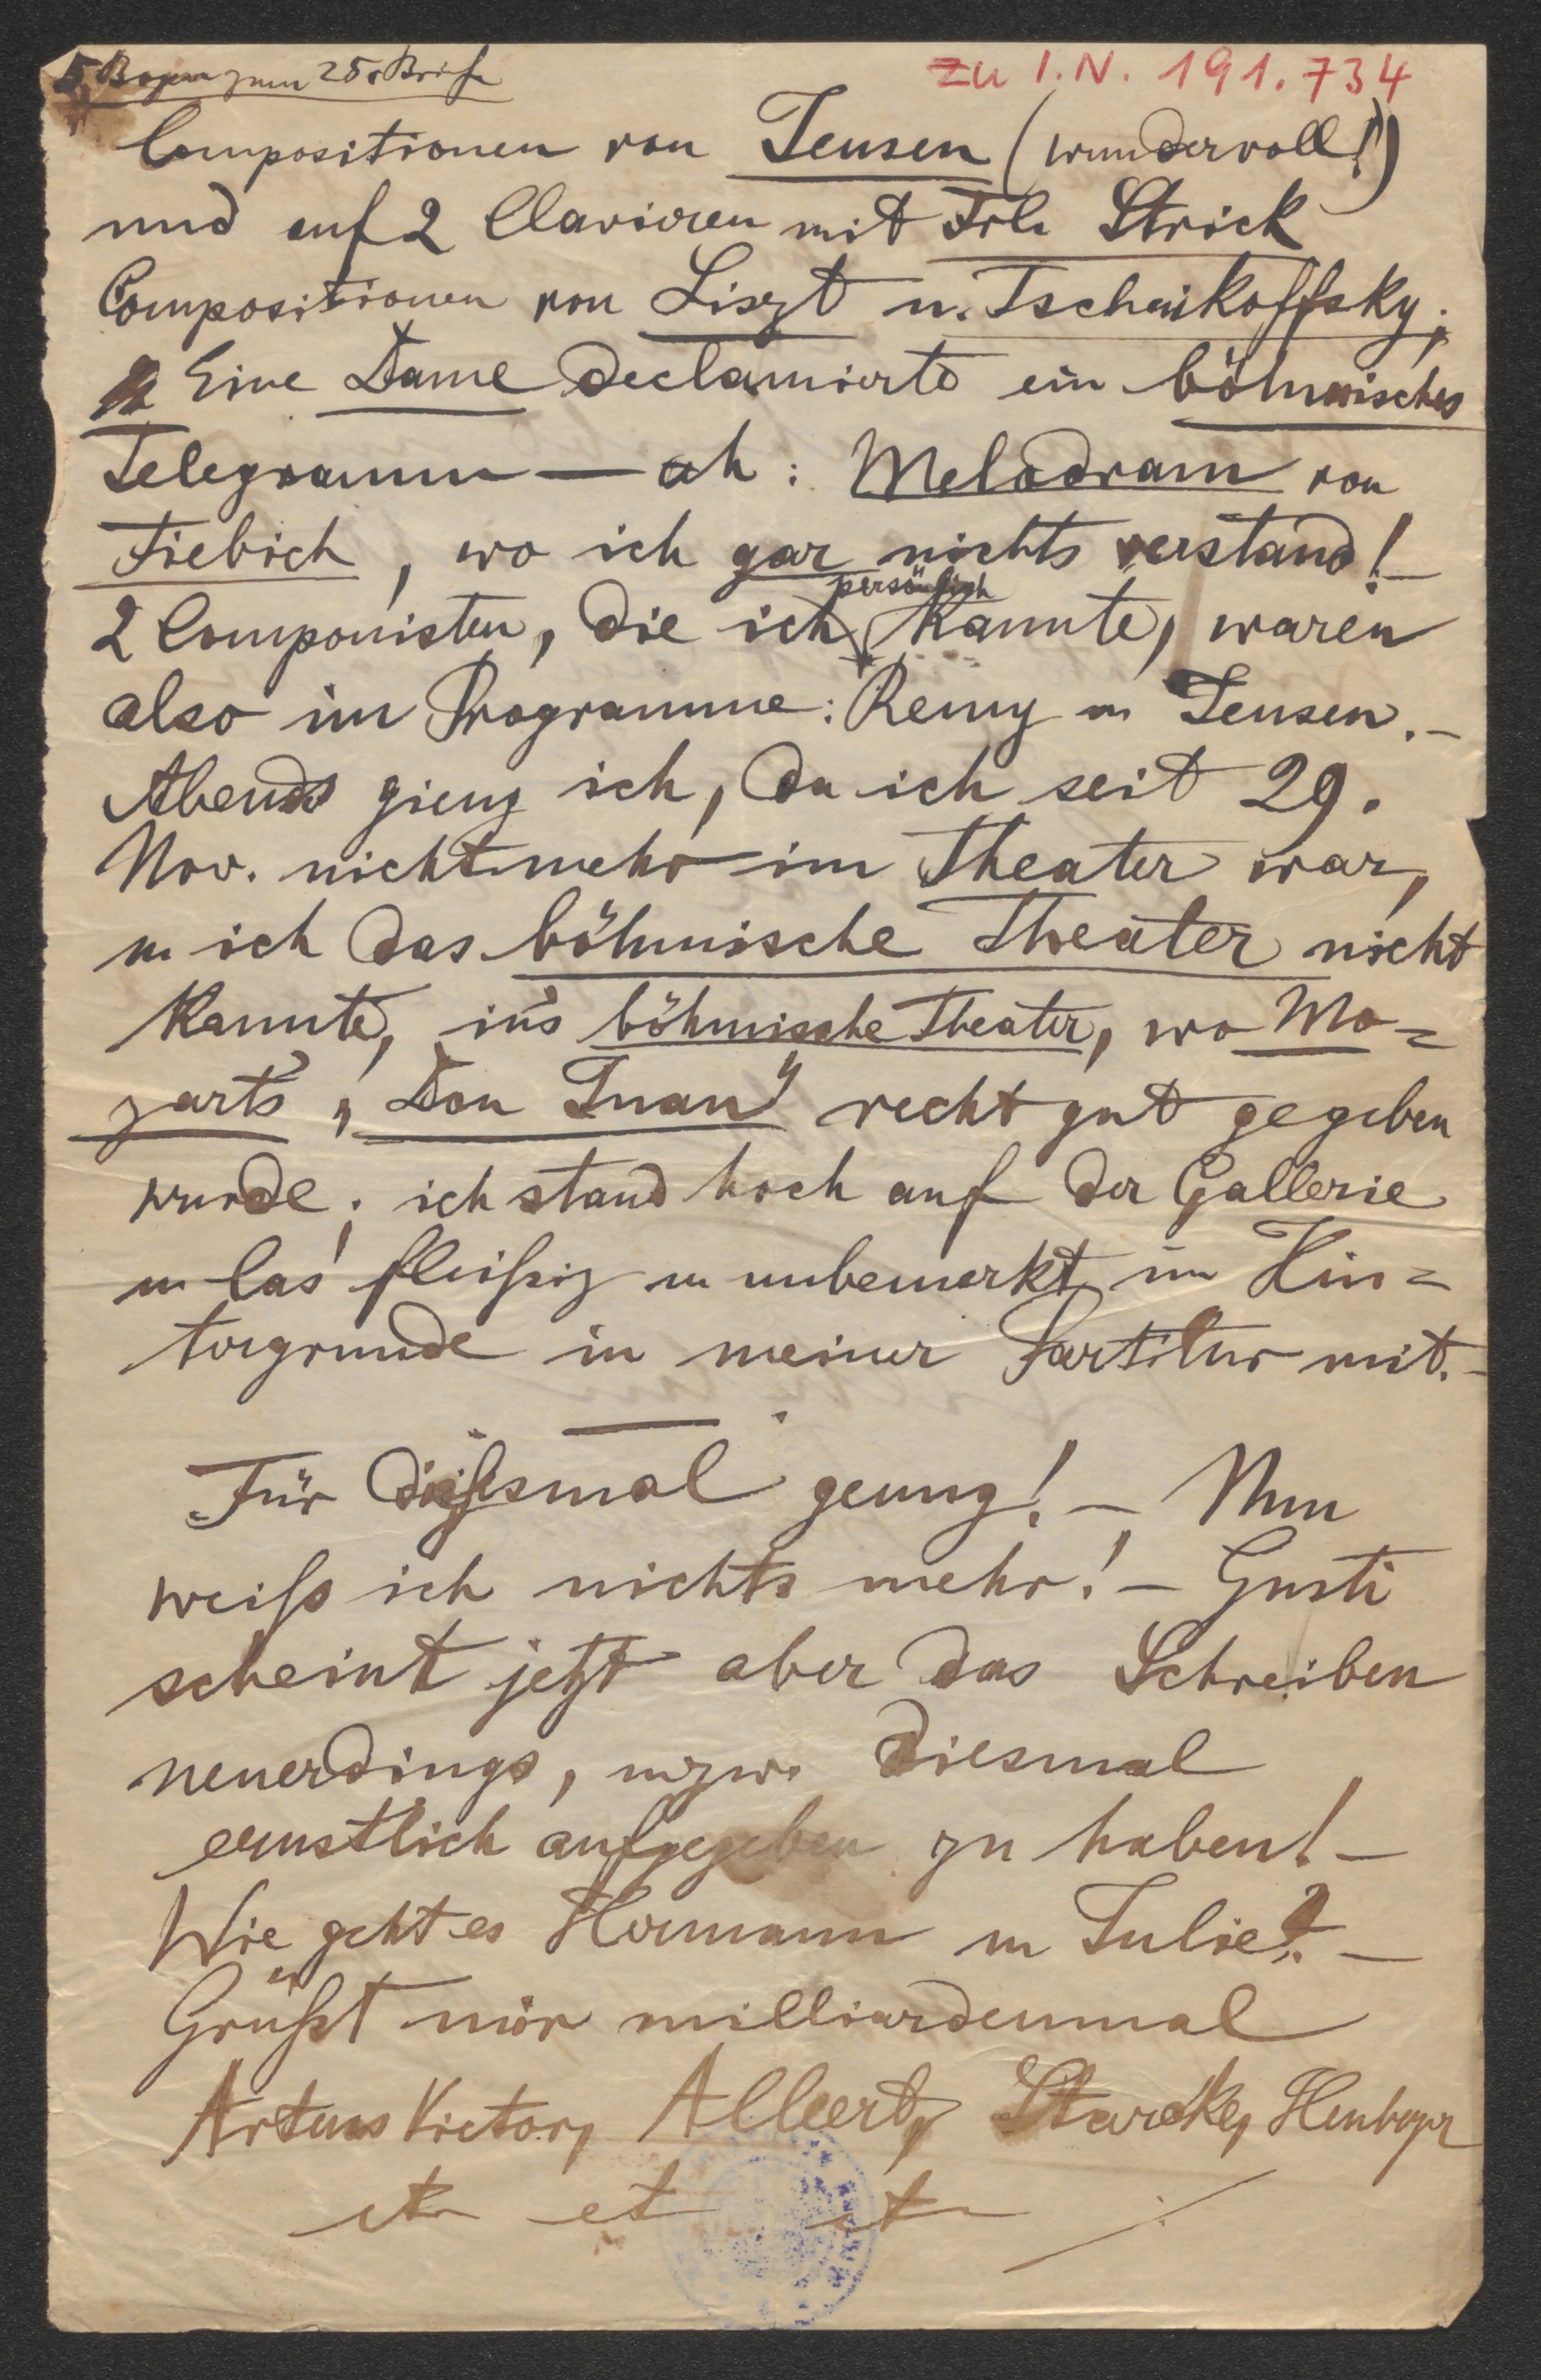 5 Bogen zum 25. Briefe
zu I.N. 191.734
Compositionen von Jensen (wundervoll!)
und auf 2 Clavieren mit Frl. Strick
Compositionen von Liszt u. Tschaikoffsky;
Eine Dame declamierte ein böhmisches
Telegramm — ah: Melodram von
Fiebich, wo ich gar nichts verstand! —
persönlich
2 Componisten, die ich kannte, waren
also im Programme: Remy u Jensen. —
Abends gieng ich, da ich seit 29.
Nov. nicht mehr im Theater war,
u ich das böhmische Theater nicht
kannte, in's böhmische Theater, wo Mo=
zart's „Don Juan" recht gut gegeben
wurde; ich stand hoch auf der Gallerie
u las fleißig u unbemerkt im Hin=
tergrunde in meiner Partitur mit. —
Für diesesmal genug! — Nun
weiß ich nichts mehr! — Gusti
scheint jetzt aber das Schreiben
neuerdings, uzw. diesmal
ernstlich aufgegeben zu haben! —
Wie geht es Hermann u Julie? —
Grüßt mir milliardenmal
Artus Victor, Albert, Starcke,
etc et etc